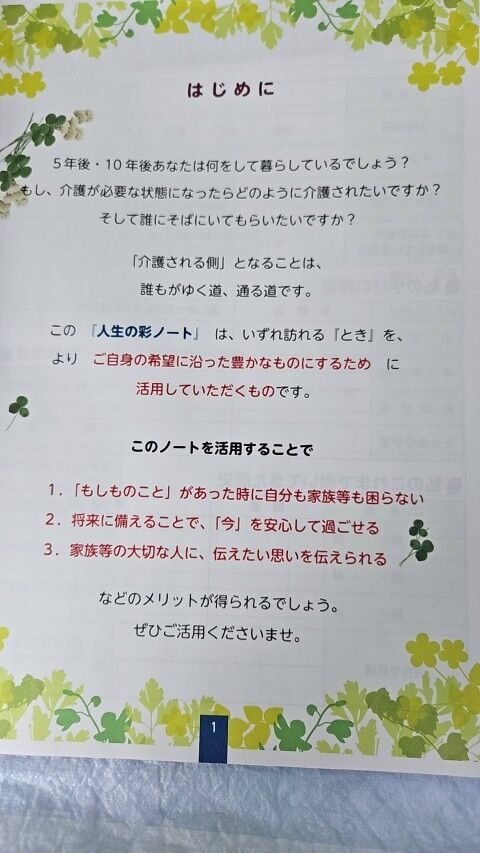 はじめに
5年後・10年後あなたは何をして暮らしているでしょう？
もし、介護が必要な状態になったらどのように介護されたいですか？
そして誰にそばにいてもらいたいですか？
「介護される側」となることは、
誰もがゆく道、通る道です。
この 『人生の彩ノート』 は、いずれ訪れる『とき』を、
より ご自身の希望に沿った豊かなものにするため に
活用していただくものです。
このノートを活用することで
1．「もしものこと」があった時に自分も家族等も困らない
2．将来に備えることで、「今」を安心して過ごせる
3．家族等の大切な人に、伝えたい思いを伝えられる
などのメリットが得られるでしょう。
ぜひご活用くださいませ。
1